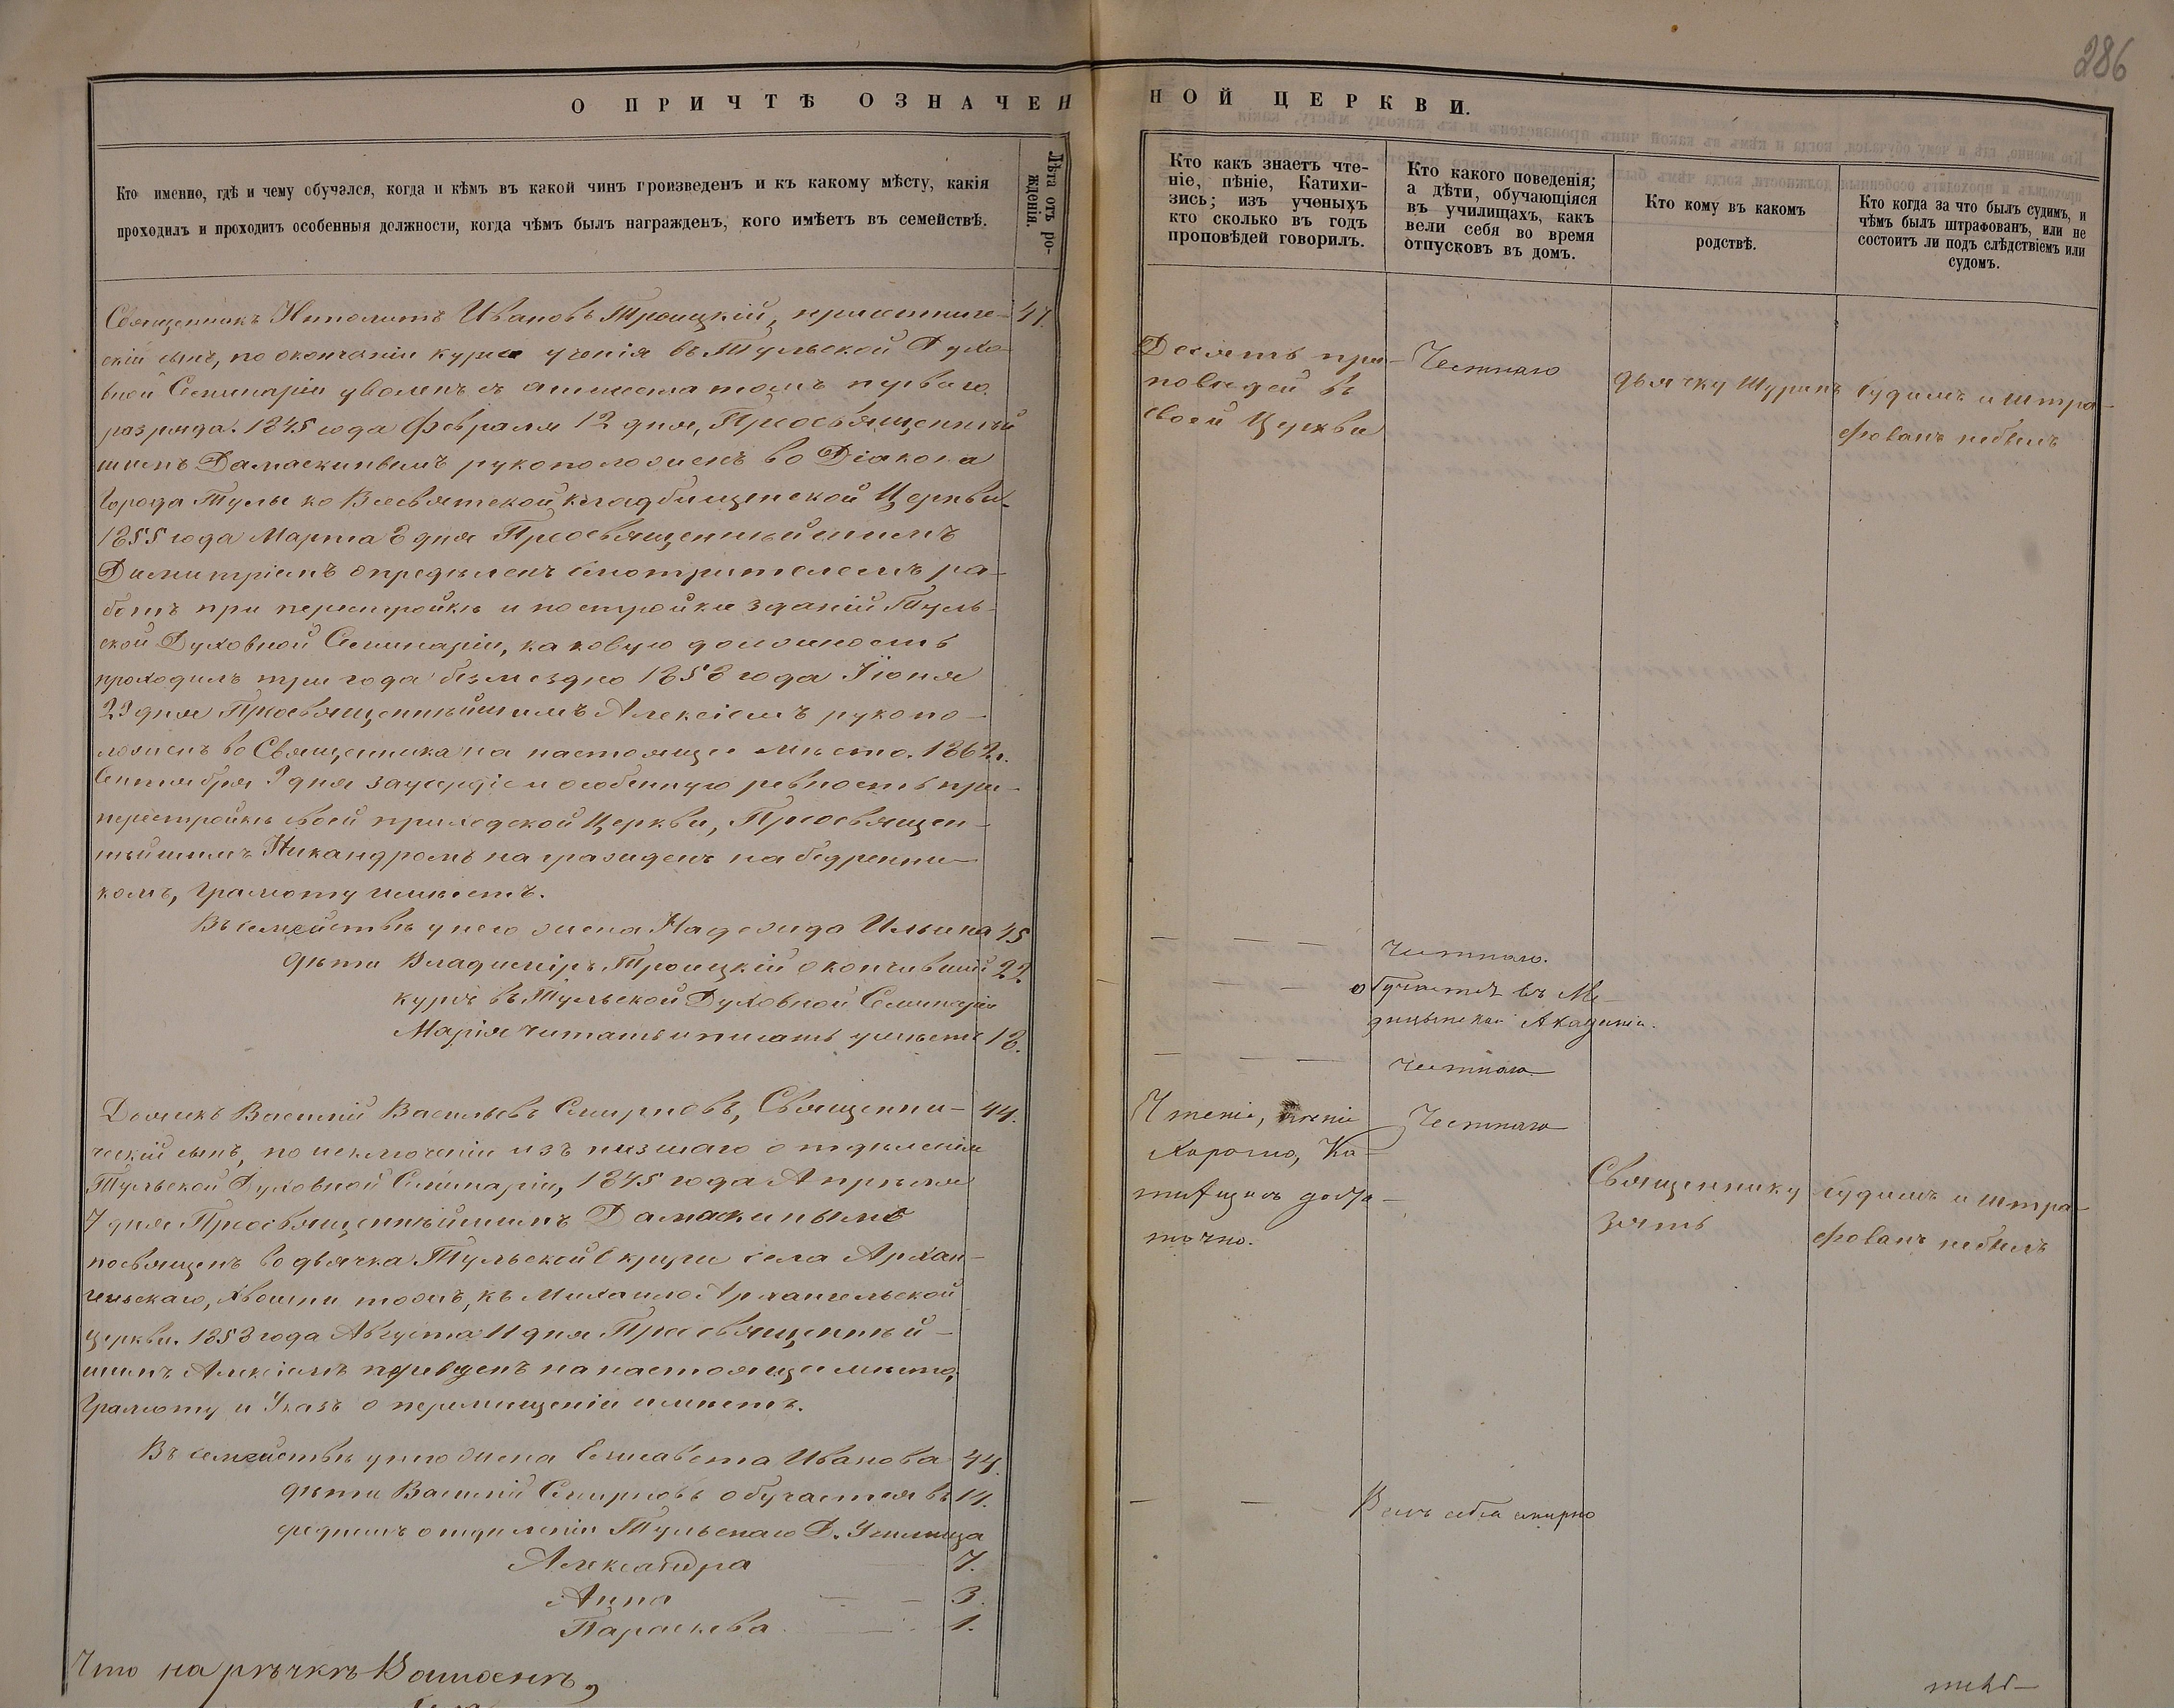 286
О ПРИЧТѢ ОЗНАЧЕННОЙ ЦЕРКВИ.
Кто именно, гдѣ и чему обучался, когда и кѣмъ въ какой чинъ произведенъ и къ какому мѣсту, какія
проходилъ и проходитъ особенныя должности, когда чѣмъ былъ награжденъ, кого имѣетъ въ семействѣ.
Лѣта отъ ро-
жденія.
Священникъ Ипполитъ Ивановъ Троицкій, причетниче- 47.
скій сынъ, по окончаніи курса ученія въ Тульской Духо-
вной Семинаріи уволенъ съ аттестатомъ перваго
разряда. 1845 года Февраля 12 дня, Преосвященнѣй
шимъ Дамаскинымъ рукоположенъ во Діакона
Города Тулы ко Всесвятской кладбищенской Церкви.
1855 года Марта 8 дня Преосвященнѣйшимъ
Димитріемъ опредѣленъ смотрителемъ ра-
ботъ при перестройкѣ и постройкѣ зданій Туль-
ской Духовной Семинаріи, каковую должность
проходилъ три года безмездно 1858 года Іюня
29 дня Преосвященнѣйшимъ Алексіемъ рукопо-
ложенъ во Священника на настоящее мѣсто. 1862 г.
Сентября 9 дня за усердіе и особенную ревность при
перестройкѣ своей приходской Церкви, Преосвящен-
нѣйшимъ Никандромъ награжденъ набедренни-
комъ, грамоту имѣетъ.
Въ семействѣ у него жена Надежда Ильина 45
дѣти Владиміръ Троицкій окончившій 22.
курсъ въ Тульской Духовной Семинаріи
Марія читать и писать умѣетъ 18.
Дьячекъ Василій Васильевъ Смирновъ, Священни- 44.
ческій сынъ, по исключеніи изъ низшаго отдѣленія
Тульской Духовной Семинаріи, 1845 года Апрѣля
7 дня Преосвященнѣйшимъ Дамаскинымъ
посвященъ во дьячка Тульской округи села Архан-
гельскаго, Хвощни тожъ, къ Михаило Архангельской
церкви. 1858 года Августа 11 дня Преосвященнѣй-
шимъ Алексіемъ переведенъ на настоящее мѣсто,
Грамоту и Указъ о перемѣщеніи имѣетъ.
Въ семействѣ у него жена Елисавета Иванова 44.
дѣти Василій Смирновъ обучается въ 14.
среднемъ отдѣленіи Тульскаго Д. Училища
Александра 7.
Анна 3.
Параскева 1.
Что на рѣчкѣ Вошанѣ,
Кто какъ знаетъ чте-
ніе, пѣніе, Катихи-
зисъ; изъ ученыхъ
кто сколько въ годъ
проповѣдей говорилъ.
Десять про-
повѣдей въ
своей Церкви
Чтеніе, пѣніе
хорошо, Ка-
тихизисъ доста-
точно.
Кто какого поведенія;
а дѣти, обучающіяся
въ училищахъ, какъ
вели себя во время
отпусковъ въ домъ.
Честнаго
Честнаго.
обучается въ Ме-
дицынской Академіи.
Честнаго
Честнаго
Велъ себя смирно
Кто кому въ какомъ
родствѣ.
дьячку Шуринъ
Священнику
зять
Кто когда за что былъ судимъ, и
чѣмъ былъ штрафованъ, или не
состоитъ ли подъ слѣдствіемъ или
судомъ.
Судимъ и штра-
фованъ небылъ
Судимъ и штра-
фованъ небылъ